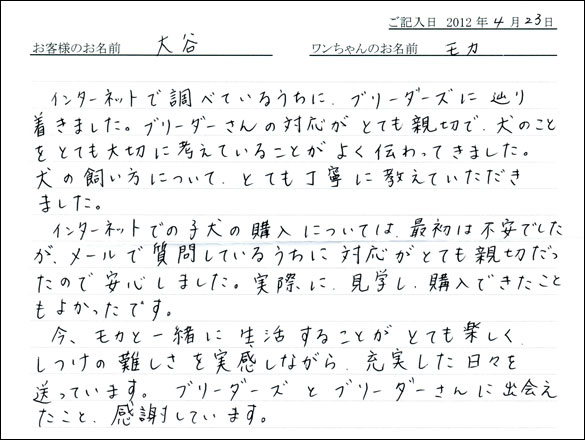 ご記入日 2012年4月23日
お客様のお名前 大谷 ワンちゃんのお名前 モカ
インターネットで調べているうちに、ブリーダーズに辿り
着きました。ブリーダーさんの対応がとても親切で、犬のこと
をとても大切に考えていることがよく伝わってきました。
犬の飼い方について、とても丁寧に教えていただき
ました。
インターネットでの子犬の購入については、最初は不安でした
が、メールで質問しているうちに対応がとても親切だっ
たので安心しました。実際に、見学し、購入できたこと
もよかったです。
今、モカと一緒に生活することがとても楽しく、
しつけの難しさを実感しながら、充実した日々を
送っています。ブリーダーズとブリーダーさんに出会え
たこと、感謝しています。